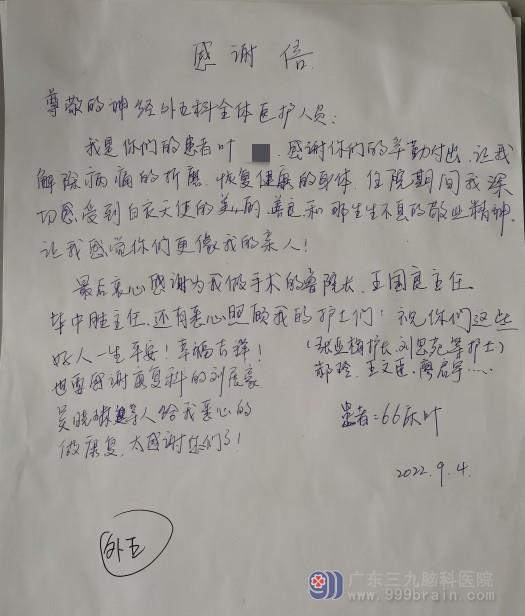 感谢信
尊敬的神经外五科全体医护人员：
我是你们的患者叶 感谢你们的辛勤付出，让我
解除病痛的折磨，恢复健康的身体，住院期间我深
切感受到白衣天使的美丽的、善良和那生生不息的敬业精神，
让我感觉你们更像我的亲人！
最后衷心感谢为我做手术的鲁院长、王国良主任、
毕中胜主任，还有悉心照顾我的护士们！祝你们这些
好人一生平安！幸福吉祥！
(张业梅护长、刘思苑等护士)
也要感谢康复科的刘展豪
郝玲、王文建、廖启宇……
吴晓 等人给我悉心的
做康复，太感谢你们了！
患者：66床叶
2022.9.4.
外五
广东三九脑科医院
www.999brain.com